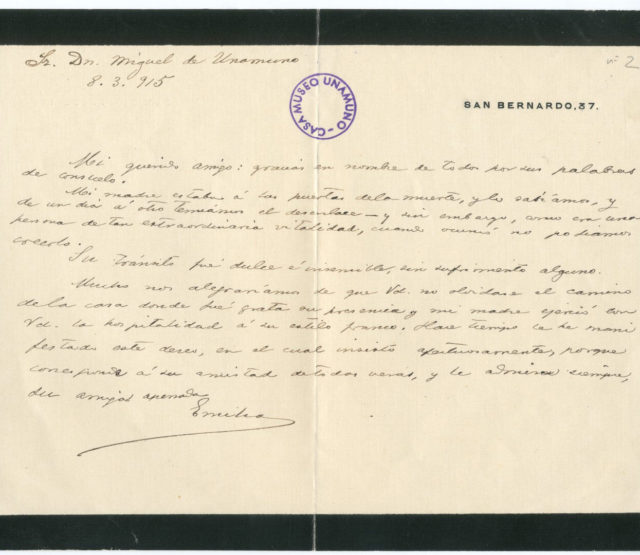 Sr. Dn. Miguel de Unamuno
8. 3. 915
CASA MUSEO UNAMUNO
SAN BERNARDO, 37.
Mi querido amigo: gracias en nombre de todos por sus palabras
de consuelo.
Mi madre estaba á las puertas de la muerte, y lo sabíamos, y
de un día á otro temíamos el desenlace – y sin embargo, como era una
persona de tan extraordinaria vitalidad, cuando ocurrió no podíamos
creerlo.
Su tránsito fué dulce é insensible, sin sufrimiento alguno.
Mucho nos alegraríamos de que Vd. no olvidase el camino
de la casa donde fué grata su presencia y mi madre ejerció con
Vd. la hospitalidad á su estilo franco. Hace tiempo le he mani
festado este deseo, en el cual insisto afectuosamente, porque
corresponde á su amistad de todas veras, y le admira siempre,
su amiga apenada
Emilia